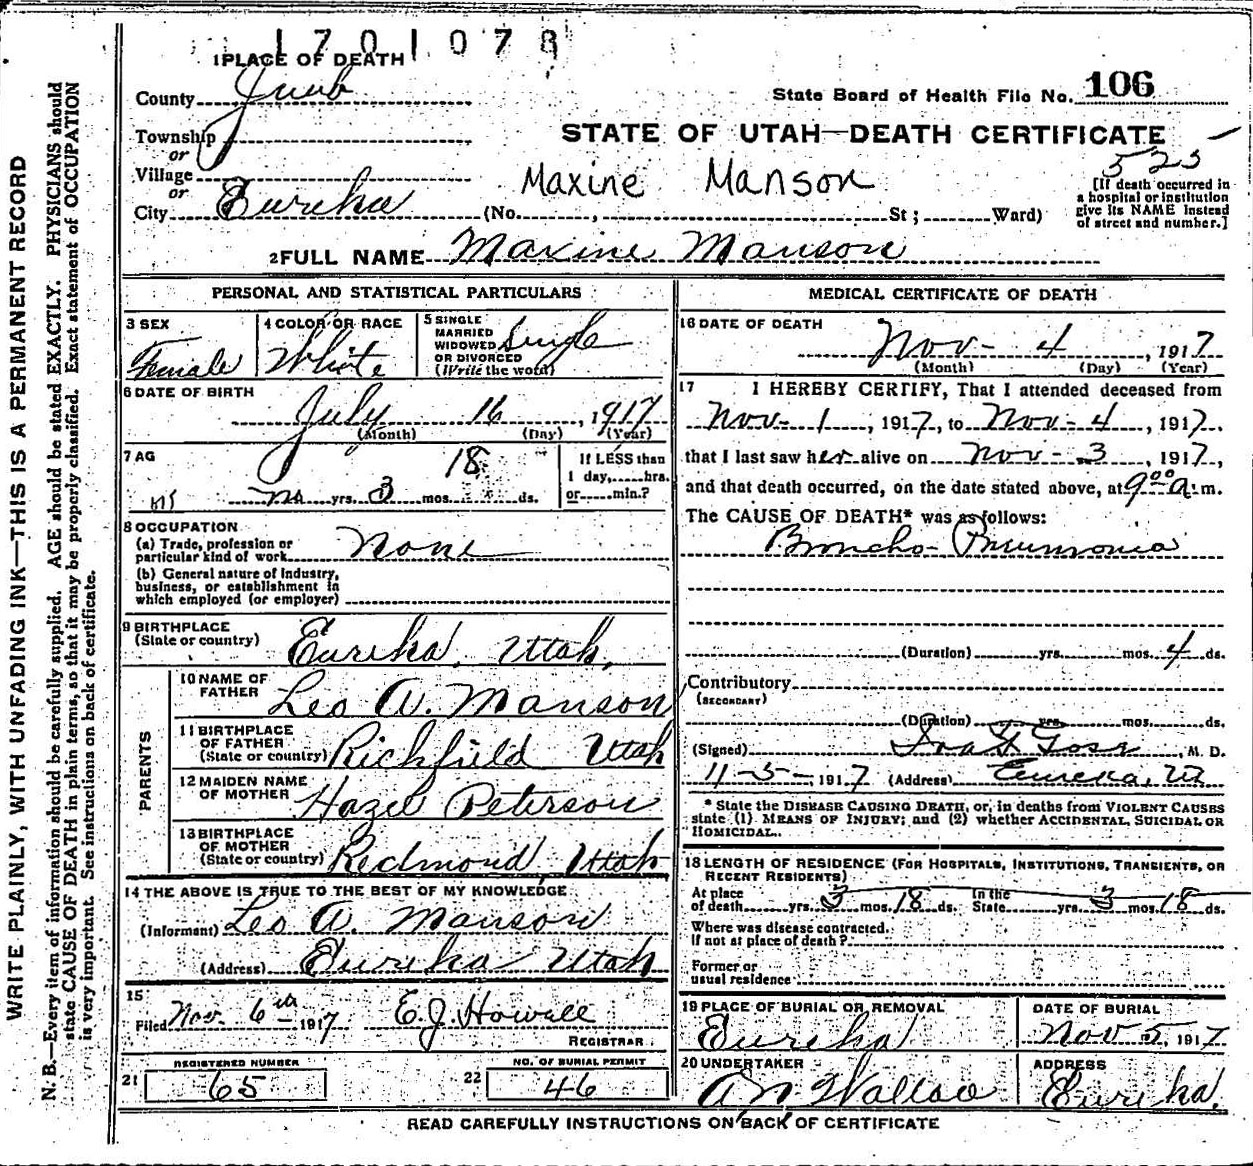 1701078
1 PLACE OF DEATH
County Juab
State Board of Health File No. 106
Township
or
STATE OF UTAH—DEATH CERTIFICATE
525
Village
or
Maxine Manson
[If death occurred in a hospital or institution give its NAME instead of street and number.]
City Eureka (No. , St; Ward)
2 FULL NAME Maxine Manson
PERSONAL AND STATISTICAL PARTICULARS
3 SEX Female
4 COLOR OR RACE White
5 SINGLE MARRIED WIDOWED OR DIVORCED (Write the word) Single
6 DATE OF BIRTH
July 16, 1917
(Month) (Day) (Year)
7 AG
no yrs. 3 mos. 18 ds.
If LESS than 1 day, hrs. or min.?
8 OCCUPATION
(a) Trade, profession or particular kind of work None
(b) General nature of industry, business, or establishment in which employed (or employer)
9 BIRTHPLACE (State or country) Eureka, Utah,
PARENTS
10 NAME OF FATHER Leo A. Manson
11 BIRTHPLACE OF FATHER (State or country) Richfield Utah
12 MAIDEN NAME OF MOTHER Hazel Peterson
13 BIRTHPLACE OF MOTHER (State or country) Redmond, Utah
14 THE ABOVE IS TRUE TO THE BEST OF MY KNOWLEDGE
(Informant) Leo A. Manson
(Address) Eureka Utah
15 Filed Nov. 6th 1917 E. J. Howell
REGISTRAR
REGISTERED NUMBER
21 65
NO. OF BURIAL PERMIT
22 46
MEDICAL CERTIFICATE OF DEATH
16 DATE OF DEATH
Nov- 4, 1917
(Month) (Day) (Year)
17 I HEREBY CERTIFY, That I attended deceased from
Nov- 1, 1917, to Nov- 4, 1917.
that I last saw her alive on Nov- 3, 1917,
and that death occurred, on the date stated above, at 9:00 a.m.
The CAUSE OF DEATH* was as follows:
Broncho-Pneumonia
(Duration) yrs. mos. 4 ds.
Contributory
(SECONDARY)
(Duration) yrs. mos. ds.
(Signed) M. D.
11-5-1917 (Address) Eureka, Ut
* State the DISEASE CAUSING DEATH, or, in deaths from VIOLENT CAUSES
state (1) MEANS OF INJURY; and (2) whether ACCIDENTAL, SUICIDAL OR
HOMICIDAL.
18 LENGTH OF RESIDENCE (FOR HOSPITALS, INSTITUTIONS, TRANSIENTS, OR
RECENT RESIDENTS)
At place of death yrs. 3 mos. 18 ds. In the State yrs. 3 mos. 18 ds.
Where was disease contracted.
If not at place of death?
Former or
usual residence
19 PLACE OF BURIAL OR REMOVAL Eureka
DATE OF BURIAL Nov 5, 1917
20 UNDERTAKER
ADDRESS Eureka.
READ CAREFULLY INSTRUCTIONS ON BACK OF CERTIFICATE
WRITE PLAINLY, WITH UNFADING INK—THIS IS A PERMANENT RECORD
N. B.—Every item of information should be carefully supplied. AGE should be stated EXACTLY. PHYSICIANS should
state CAUSE OF DEATH in plain terms, so that it may be properly classified. Exact statement of OCCUPATION
is very important. See instructions on back of certificate.